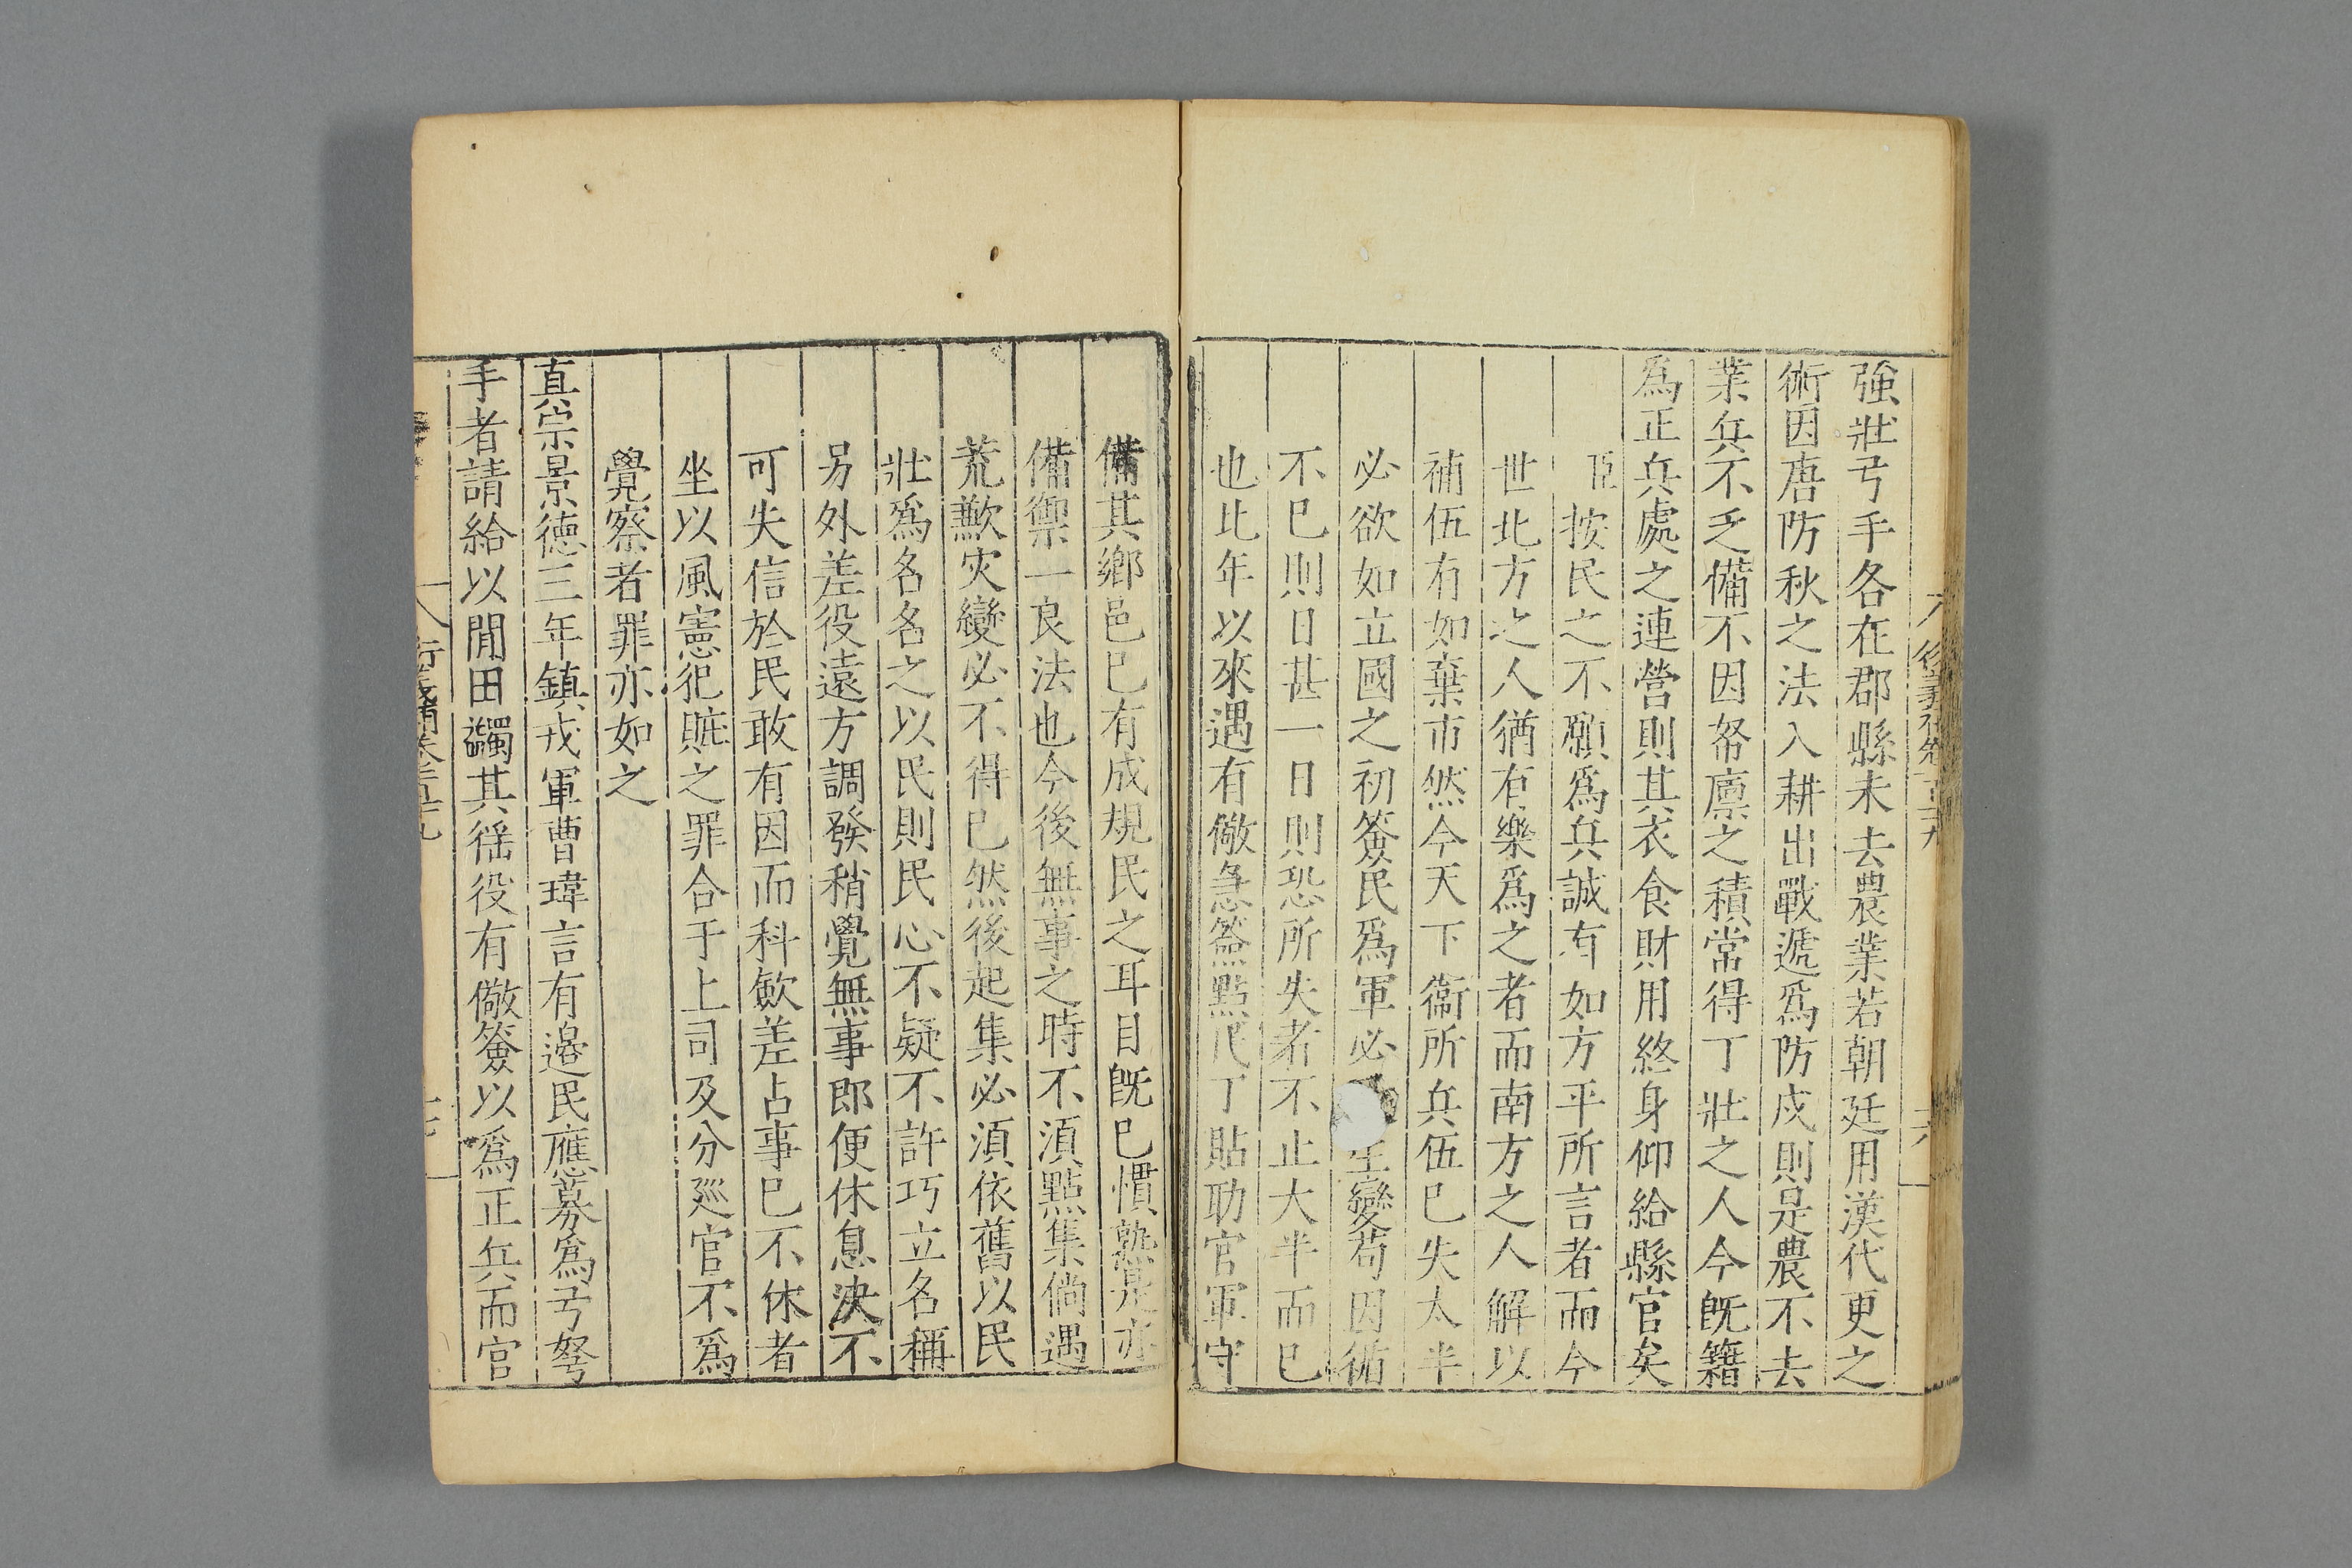 強壯弓手各在郡縣未去農業若朝廷用漢代更之
術因唐防秋之法入耕出戰遞爲防戍則是農不去
業兵不乏備不因帑廪之積常得丁壯之人今旣籍
爲正兵處之連營則其衣食財用終身仰給縣官矣
臣按民之不願爲兵誠有如方平所言者而今
世北方之人猶有樂爲之者而南方之人解以
補伍有如棄市然今天下衞所兵伍已失太半
必欲如立國之初簽民爲軍必 生變苟因循
不已則日甚一日則恐所失者不止大半而已
也比年以來遇有儆急簽點民丁貼助官軍守
備其鄉邑已有成規民之耳目旣已慣熟是亦
備禦一良法也今後無事之時不湏點集倘遇
荒歉灾變必不得已然後起集必湏依舊以民
壯爲名名之以民則民心不疑不許巧立名稱
另外差役遠方調發稍覺無事郎便休息決不
可失信於民敢有因而科歛差占事已不休者
坐以風憲犯賍之罪合于上司及分廵官不爲
覺察者罪亦如之
真宗景德三年鎮戎軍曹瑋言有邉民應募爲弓弩
手者請給以閒田蠲其徭役有儆簽以爲正兵而官